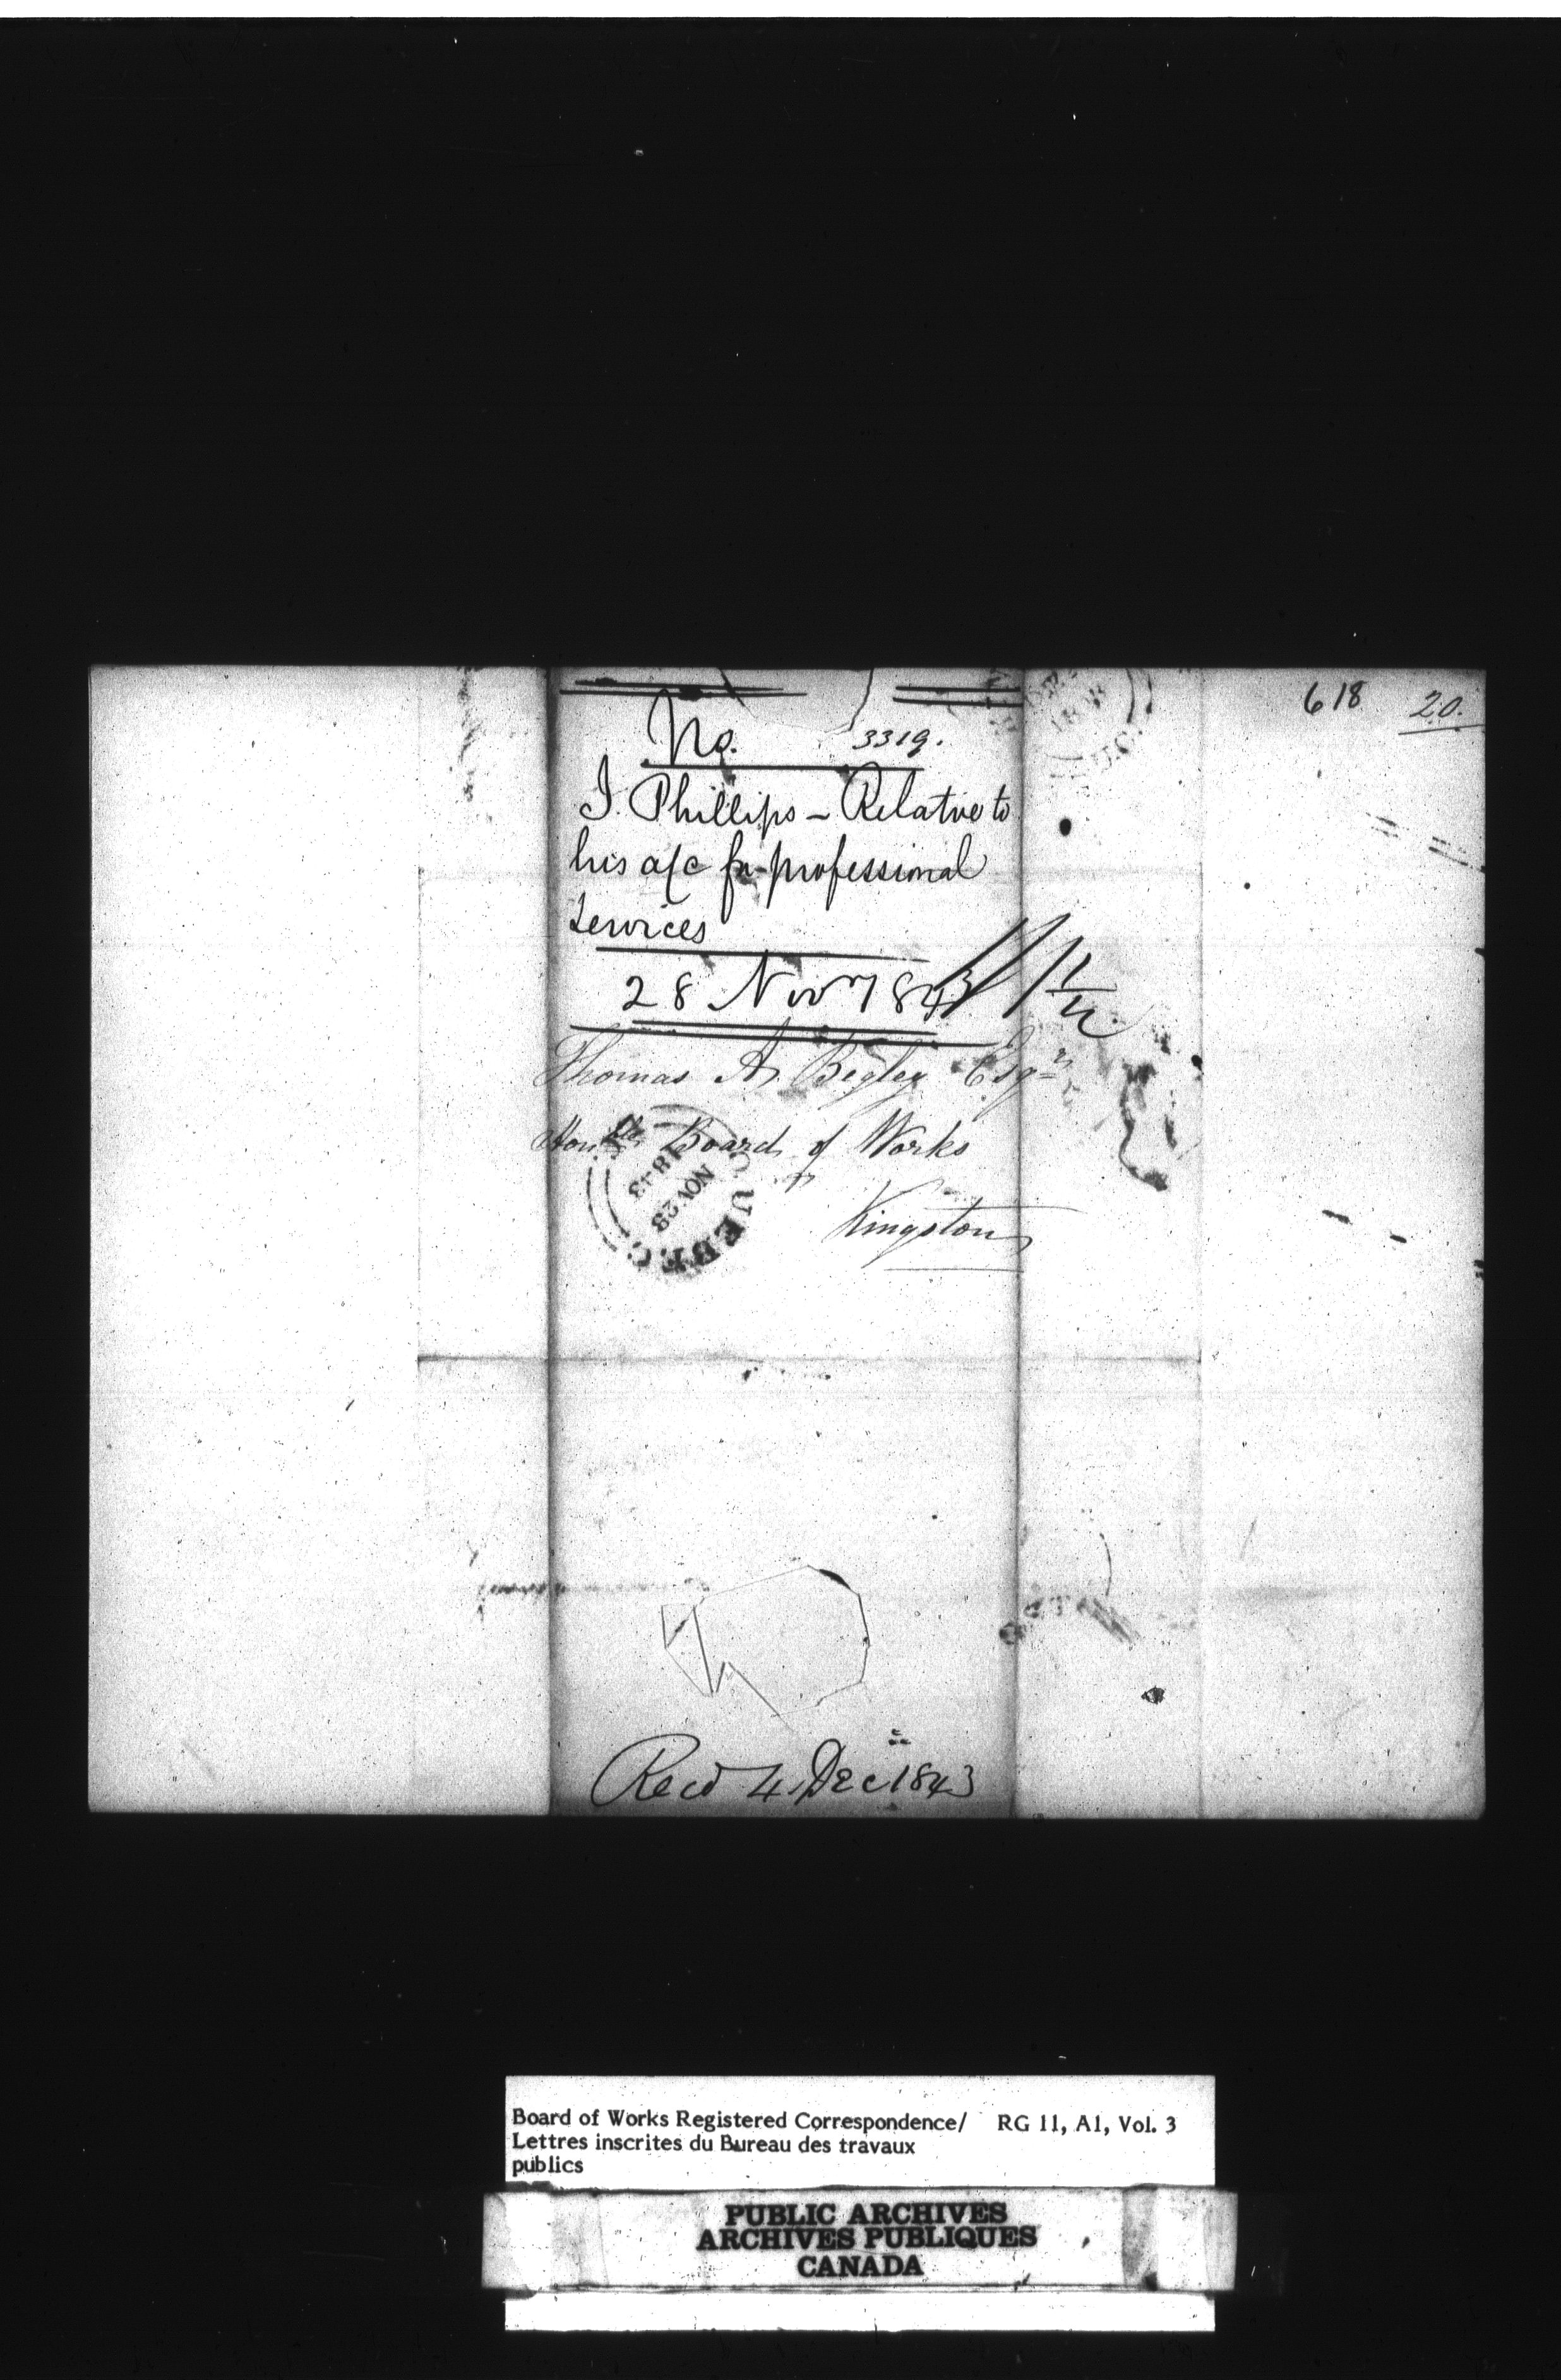 618 20.
No. 3319.
I. Phillips - Relative to
his a/c for professional
services
28 Nov 1843
Thomas A. Begley Esqr
Honble Board of Works
Kingston
QUEBEC
NOV 28
1843
Recd 4 Dec 1843
Board of Works Registered Correspondence/ RG 11, A1, Vol. 3
Lettres inscrites du Bureau des travaux
publics
PUBLIC ARCHIVES
ARCHIVES PUBLIQUES
CANADA